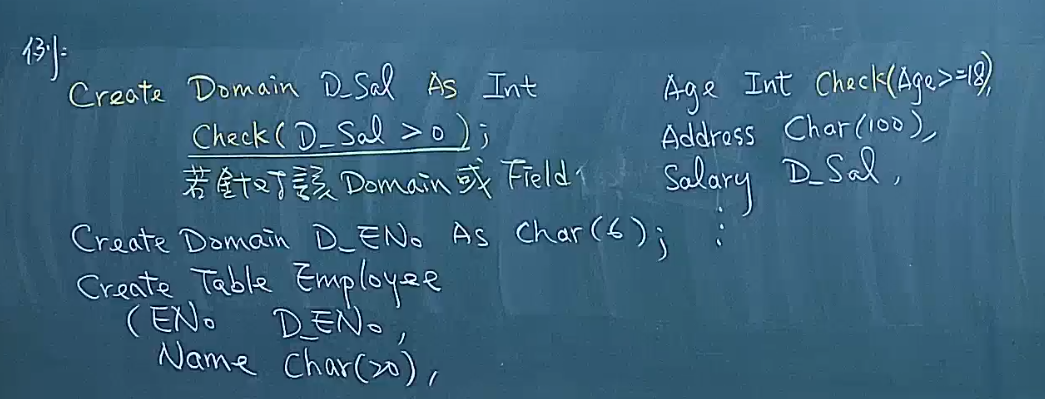 例:
Create Domain D_Sal As Int
Check(D_Sal > 0);
若針對該 Domain 或 Field
Create Domain D_ENo As Char(6);
Create Table Employee
(ENo D_ENo,
Name Char(20),
Age Int Check(Age>=18),
Address Char(100),
Salary D_Sal,
⋮